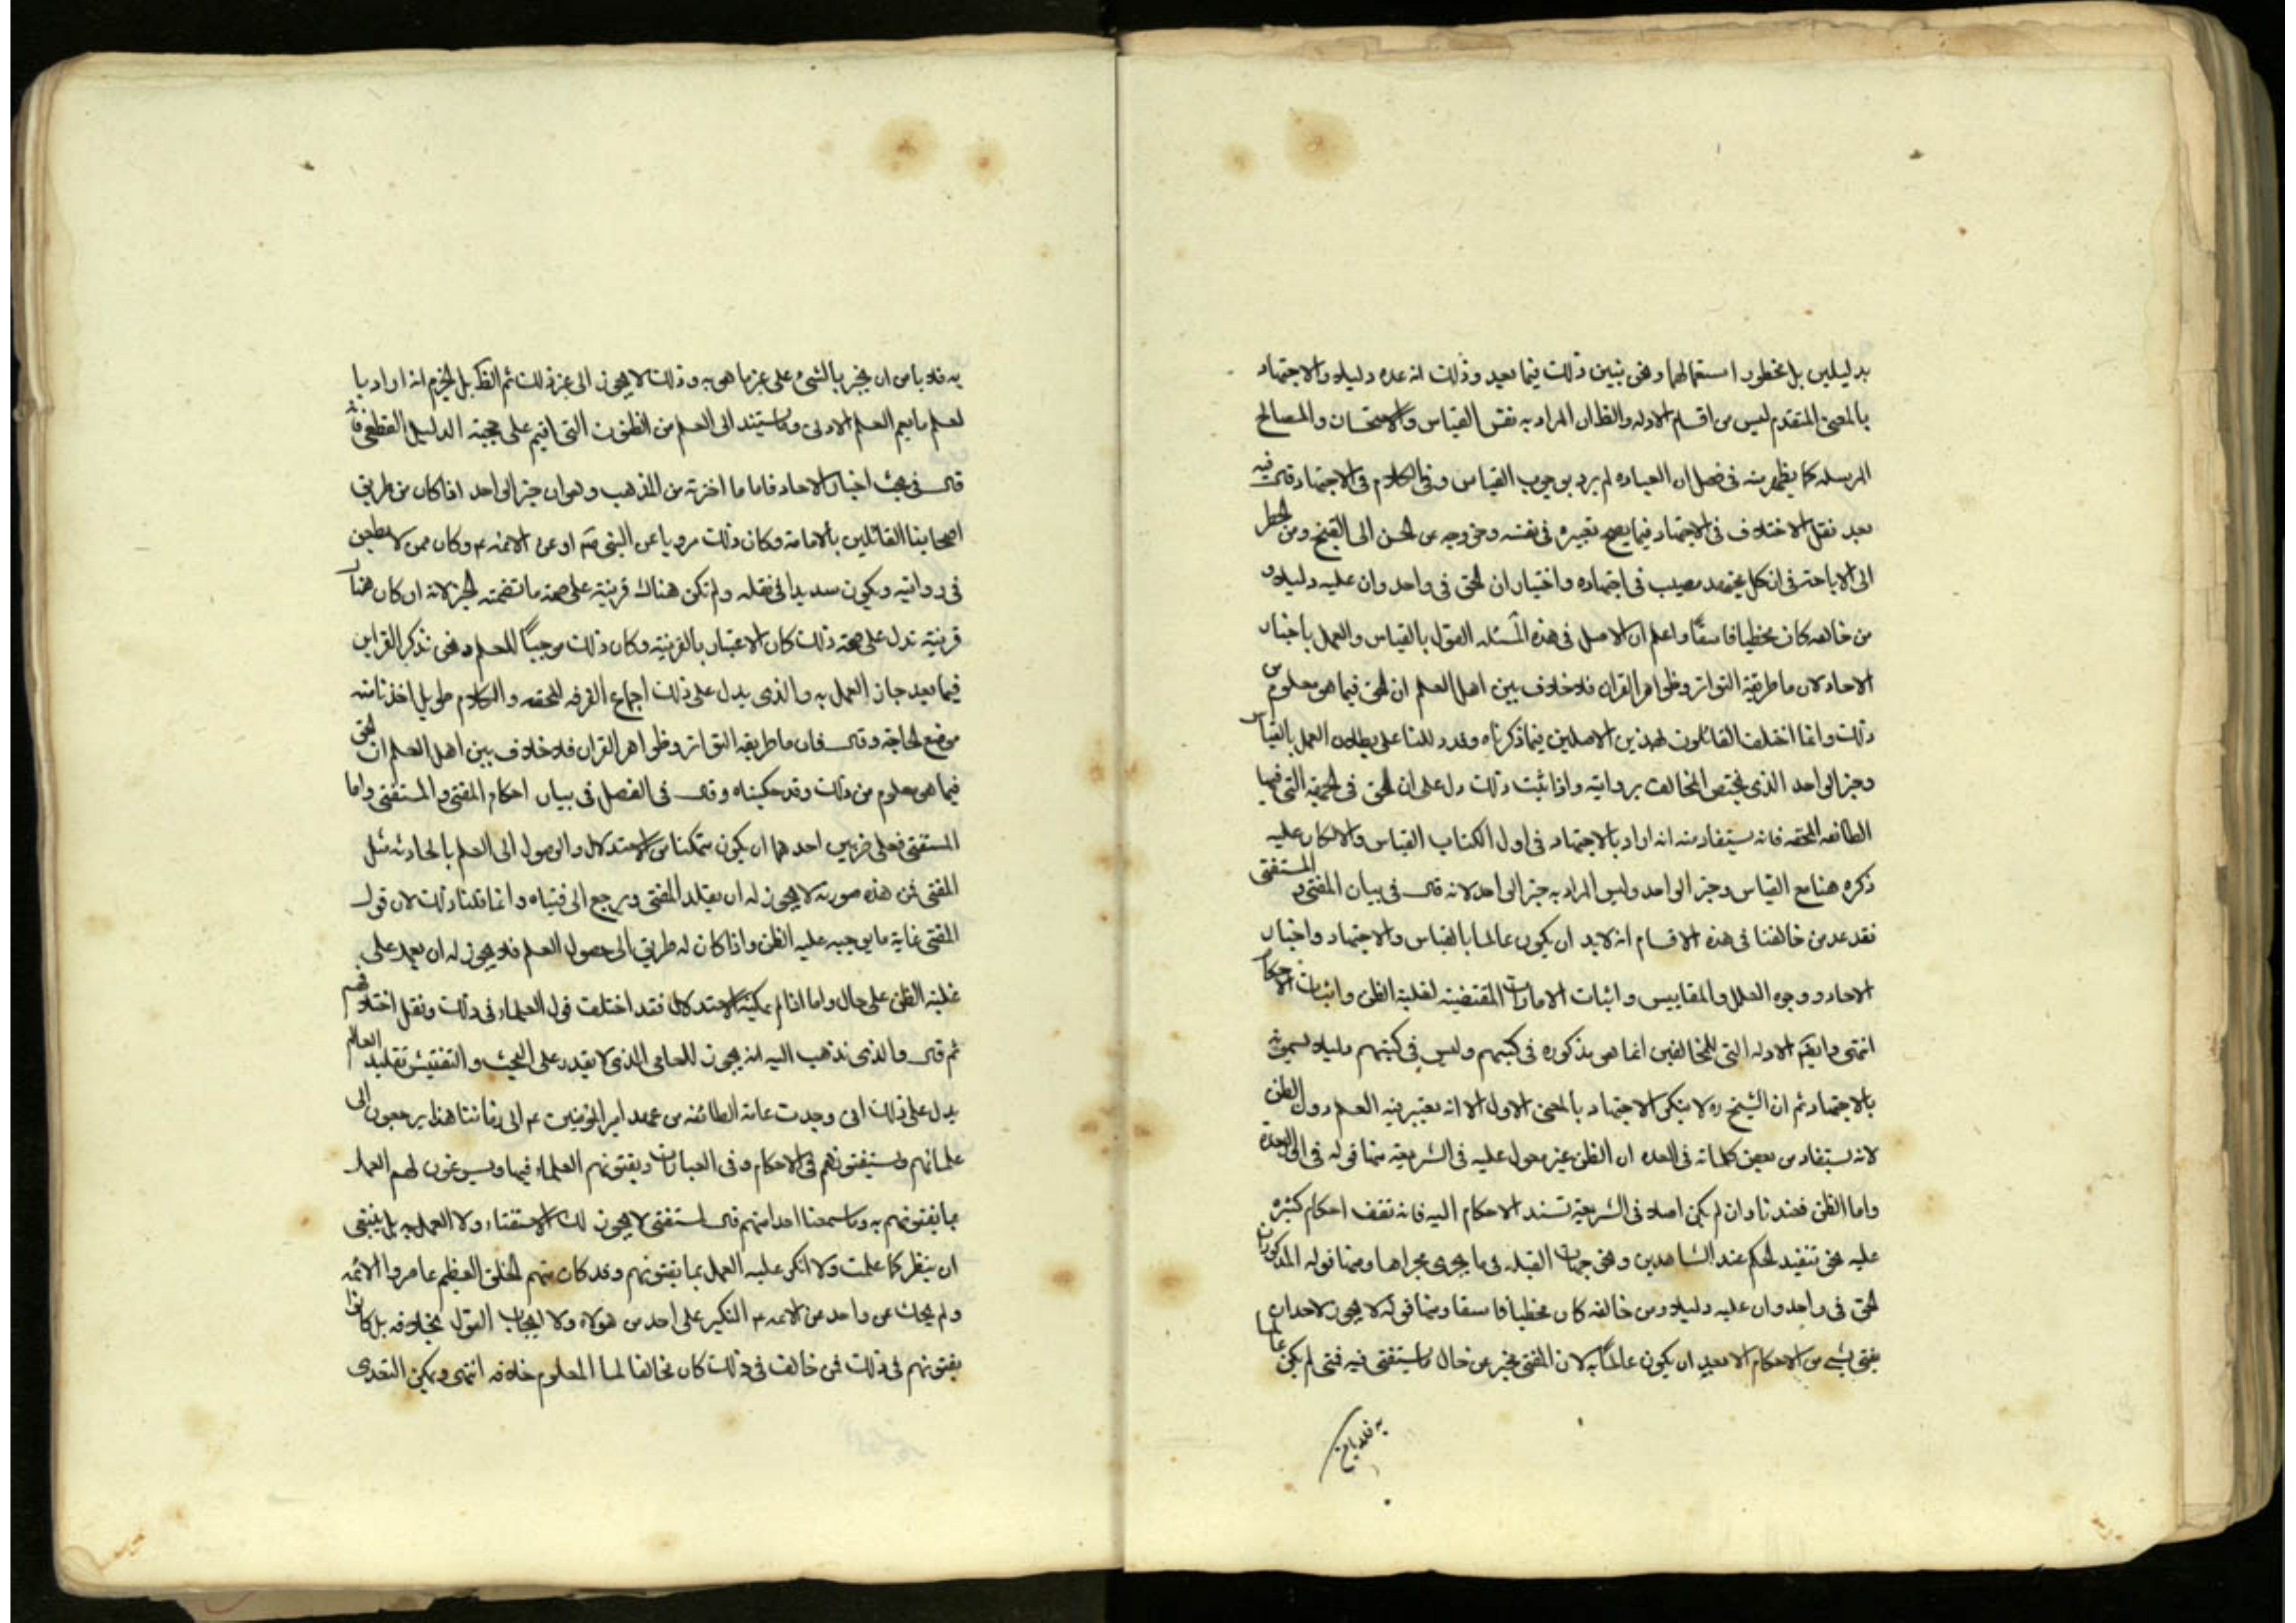 بدليلين بل محظور استعمالهما ونحن نبين ذلك فيما بعد وذلك انه عده دليلا والاجتهاد
بالمعنى المتقدم ليس من اقسام الادله والظ ان المراد به نفس القياس والاستحسان والمصالح
المرسله كما يظهر منه في فصل ان العباده لم يرد بوجوب القياس وفي الكلام في الاجتهاد قال فيه
بعد نقل الاختلاف في الاجتهاد فيما يصح تغييره في نفسه وخروجه عن الحسن الى القبيح ومن الحظر
الى الاباحة في ان كل مجتهد مصيب في اجتهاده واختيار ان الحق في واحد وان عليه دليلا و
من خالفه كان مخطيا فاسقًا واعلم ان الاصل في هذه المسئله القول بالقياس والعمل باخبار
الاحاد لان ما طريقة التواتر وظواهر القران فلا خلاف بين اهل العلم ان الحق فيما هو معلوم من
ذلك وانما اختلف القائلون بهذين الاصلين فيما ذكرناه وقد دللنا على بطلان العمل بالقياس
وخبر الواحد الذي يختص المخالف بروايته واذا ثبت ذلك دل على ان الحق في الجهة التي فيها
الطائفه المحقه فانه يستفاد منه انه اراد بالاجتهاد في اول الكتاب القياس والا لكان عليه
ذكره هنا مع القياس وخبر الواحد وليس المراد به خبر الواحد لانه قال في بيان المفتي والمستفتي
فقد عد من خالفنا في هذه الاقسام انه لابد ان يكون عالما بالقياس والاجتهاد واخبار
الاحاد ووجوه العلل والمقاييس واثبات الامارات المقتضية لغلبة الظن واثبات الاحكام
انتهى الادله التي للمخالفين انما هو مذكوره في كتبهم وليس في كتبهم دليلا يسمونه
بالاجتهاد ثم ان الشيخ ره لا ينكر الاجتهاد بالمعنى الاول الا انه يعتبر فيه العلم دون الظن
لانه يستفاد من بعض كلماته في العده ان الظن غير معول عليه في الشريعة منها قوله في
واما الظن فعندنا وان لم يكن اصلا في الشريعة تسند الاحكام اليه فانه تقف احكام كثيره
عليه نحو تنفيذ الحكم عند الشاهدين ونحو جهات القبله في ما يجري مجراها ومنها قوله المذكور ان
الحق في واحد وان عليه دليلا ومن خالفه كان مخطيا فاسقا ومنها قوله لا يجوز لاحد ان
يفتي بشي من الاحكام الا بعد ان يكون عالمًا به لان المفتي يخبر عن حال ما يستفتى فيه فمتى لم يكن عالما
به فلا يامن
به فلا يامن ان يخبر بالشي على غير ما هو به وذلك لا يجوز الى غير ذلك ثم الظ بل الجزم انه اراد با
لعلم ما يعم العلم الاولى وما يستند الى العلم من الظنون التي اقيم على حجيته الدليل القطعي فانه
قال في بحث اخبار الاحاد فاما ما اخترته من المذهب وهو ان خبر الواحد اذا كان من طريق
اصحابنا القائلين بالامامة وكان ذلك مرويا عن النبي صم او عن الائمه ع وكان ممن لا يطعن
في روايته ويكون سديدا في نقله ولم تكن هناك قرينة على صحة ما تضمنه الخبر لانه ان كان هناك
قرينة تدل على صحة ذلك كان الاعتبار بالقرينة وكان ذلك موجبًا للعلم ونحن نذكر القراين
فيما بعد جاز العمل به والذي يدل على ذلك اجماع الفرقه المحقه والكلام طويل اخذنا منه
موضع الحاجة وقال فان ما طريقه التواتر وظواهر القران فلا خلاف بين اهل العلم ان الحق
فيما هو معلوم من ذلك وقد حكيناه وقال في الفصل في بيان احكام المفتي والمستفتي واما
المستفتي فعلى ضربين احدهما ان يكون متمكنا من الاستدلال والوصول الى العلم بالحادثه مثل
المفتي فمن هذه صورته لا يجوز له ان يقلد المفتي ويرجع الى فتياه وانما قلنا ذلك لان قول
المفتي غاية ما يوجبه عليه الظن واذا كان له طريق الى حصول العلم فلا يجوز له ان يعمل على
غلبة الظن على حال واما اذا لم يمكنه الاستدلال فقد اختلف قول العلماء في ذلك ونقل اختلافهم
ثم قال والذي نذهب اليه انه يجوز للعامي الذي لا يقدر على البحث والتفتيش تقليد العالم
يدل على ذلك اني وجدت عامة الطائفه من عهد امير المؤمنين ع الى زماننا هذا يرجعون الى
علمائهم ويستفتونهم في الاحكام وفي العبادات ويفتونهم العلماء فيها ويسوغون لهم العمل
بما يفتونهم به وما سمعنا احدا منهم قال لمستفتي لا يجوز لك الاستفتاء ولا العمل به بل ينبغي
ان ينظر كما علمت ولا انكر عليه العمل بما يفتونهم وقد كان منهم الخلق العظيم عاصروا الائمه
ولم يحك عن واحد من الائمه ع النكير على احد من هولاء ولا ايجاب القول بخلافه بل كانوا
يفتونهم في ذلك فمن خالف في ذلك كان مخالفا لما المعلوم خلافه انتهى ويمكن التعدى